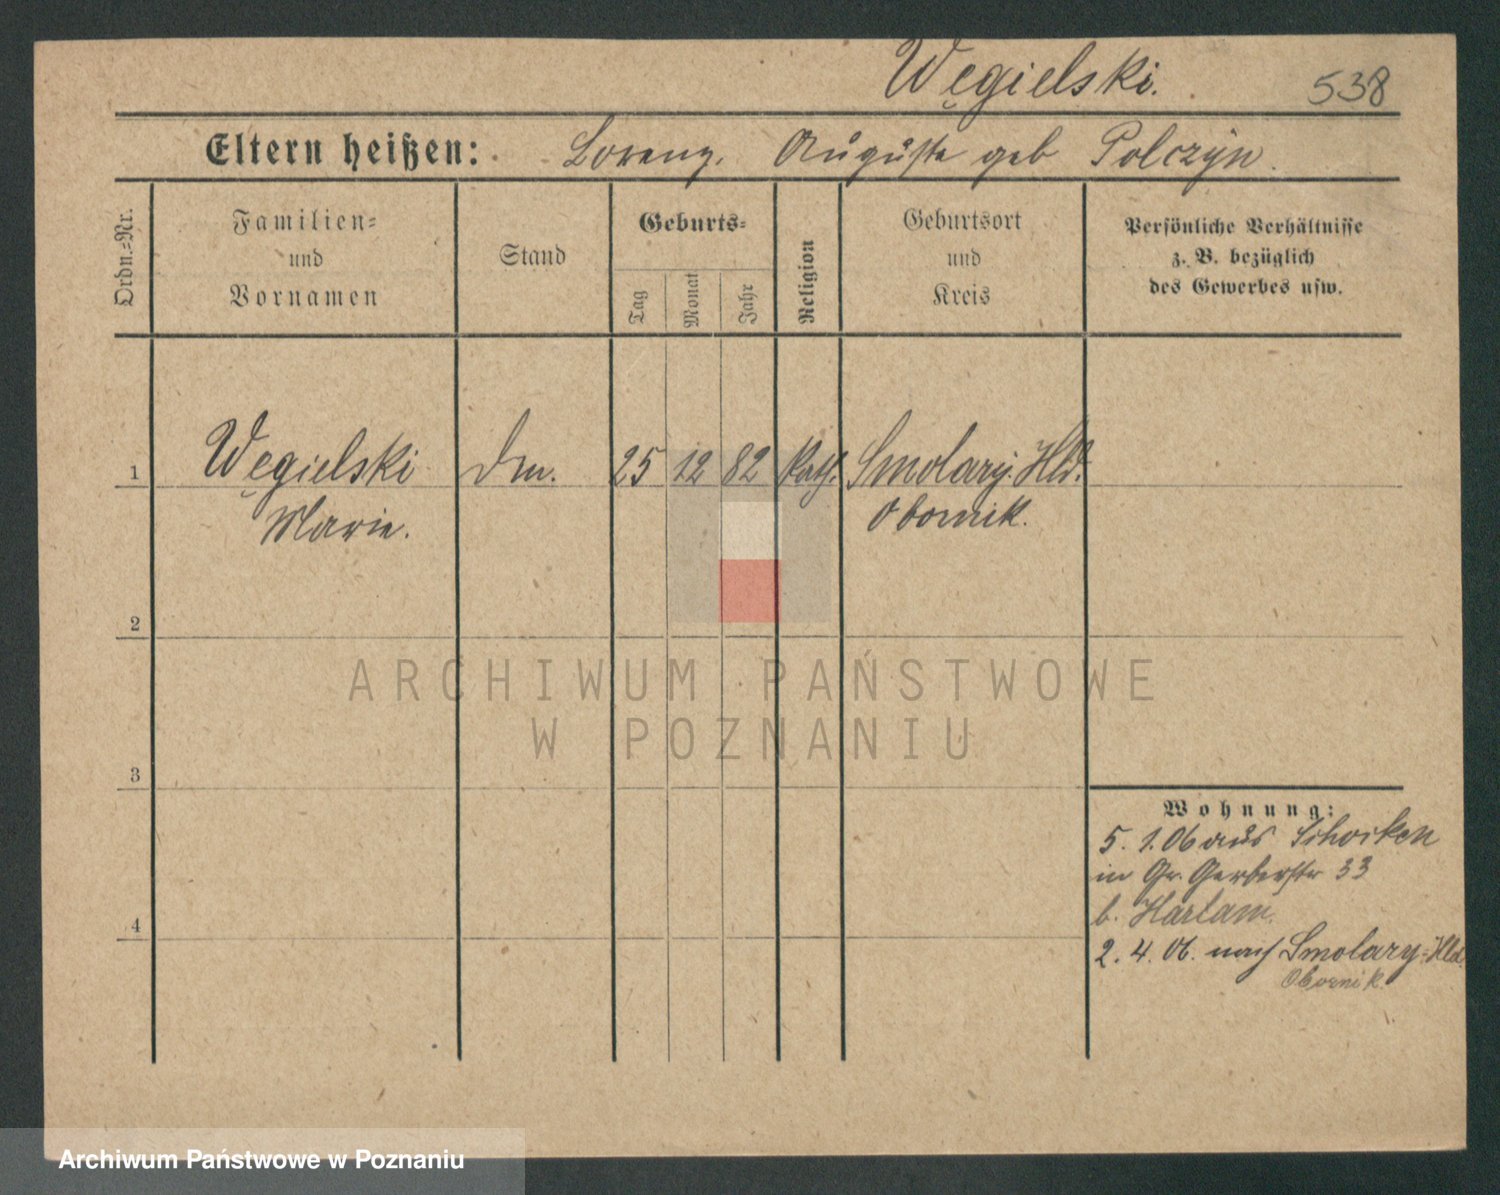 Węgielski. 538
Eltern heißen: Lorenz. Auguste geb Polczyn.
Ordn.=Nr.
Familien=
und
Vornamen
Stand
Geburts=
Tag
Monat
Jahr
Religion
Geburtsort
und
Kreis
Persönliche Verhältnisse
z. B. bezüglich
des Gewerbes usw.
1 Węgielski Dm. 25 12 82 kath. Smolary. Hld.
Marie. Obornik.
2
3
4
Wohnung:
5. 1. 06 aus Schocken
in Gr. Gerberstr 33
b. Harlam.
2. 4. 06. nach Smolary=Hld.
Obornik
ARCHIWUM PAŃSTWOWE
W POZNANIU
Archiwum Państwowe w Poznaniu